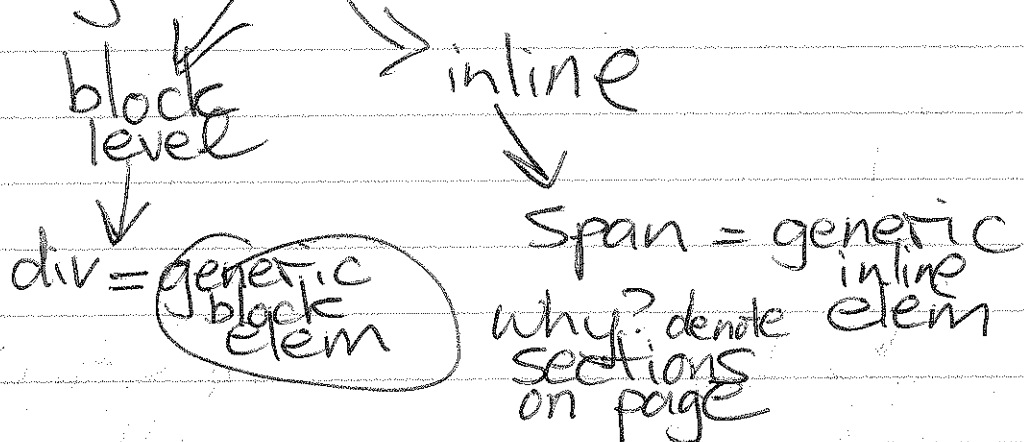 block
level
inline
div = generic
block
elem
span = generic
inline
elem
why? denote
sections
on page